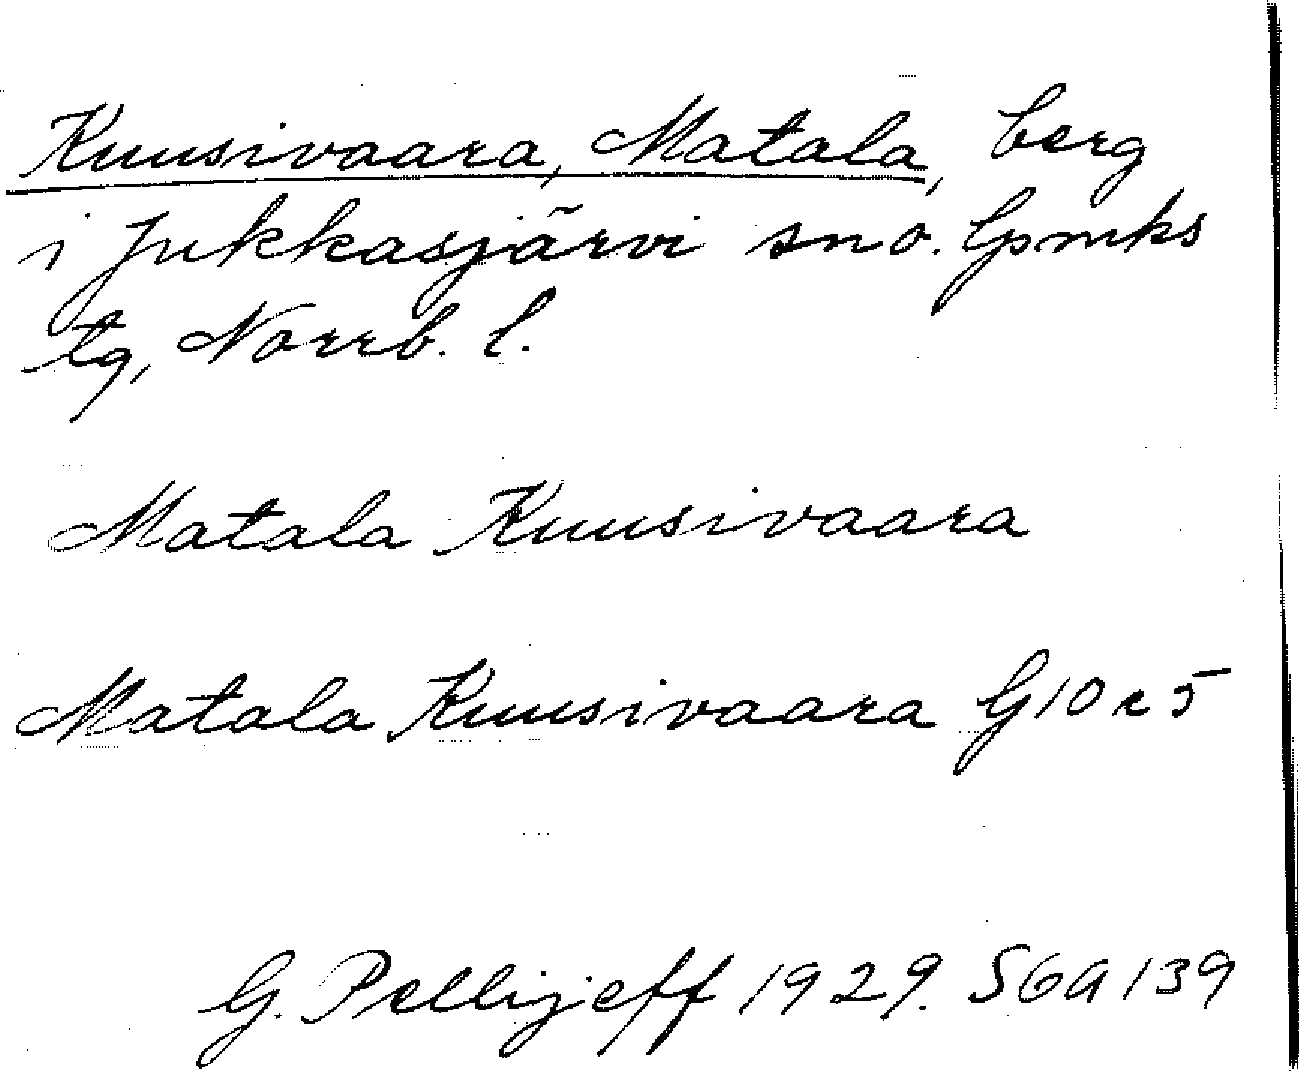 Kuusivaara, Matala, berg
i Jukkasjärvi sn o. lpmks
tg, Norrb. l.
Matala Kuusivaara
Matala Kuusivaara G10c5
G. Pellijeff 1929. SGA 139